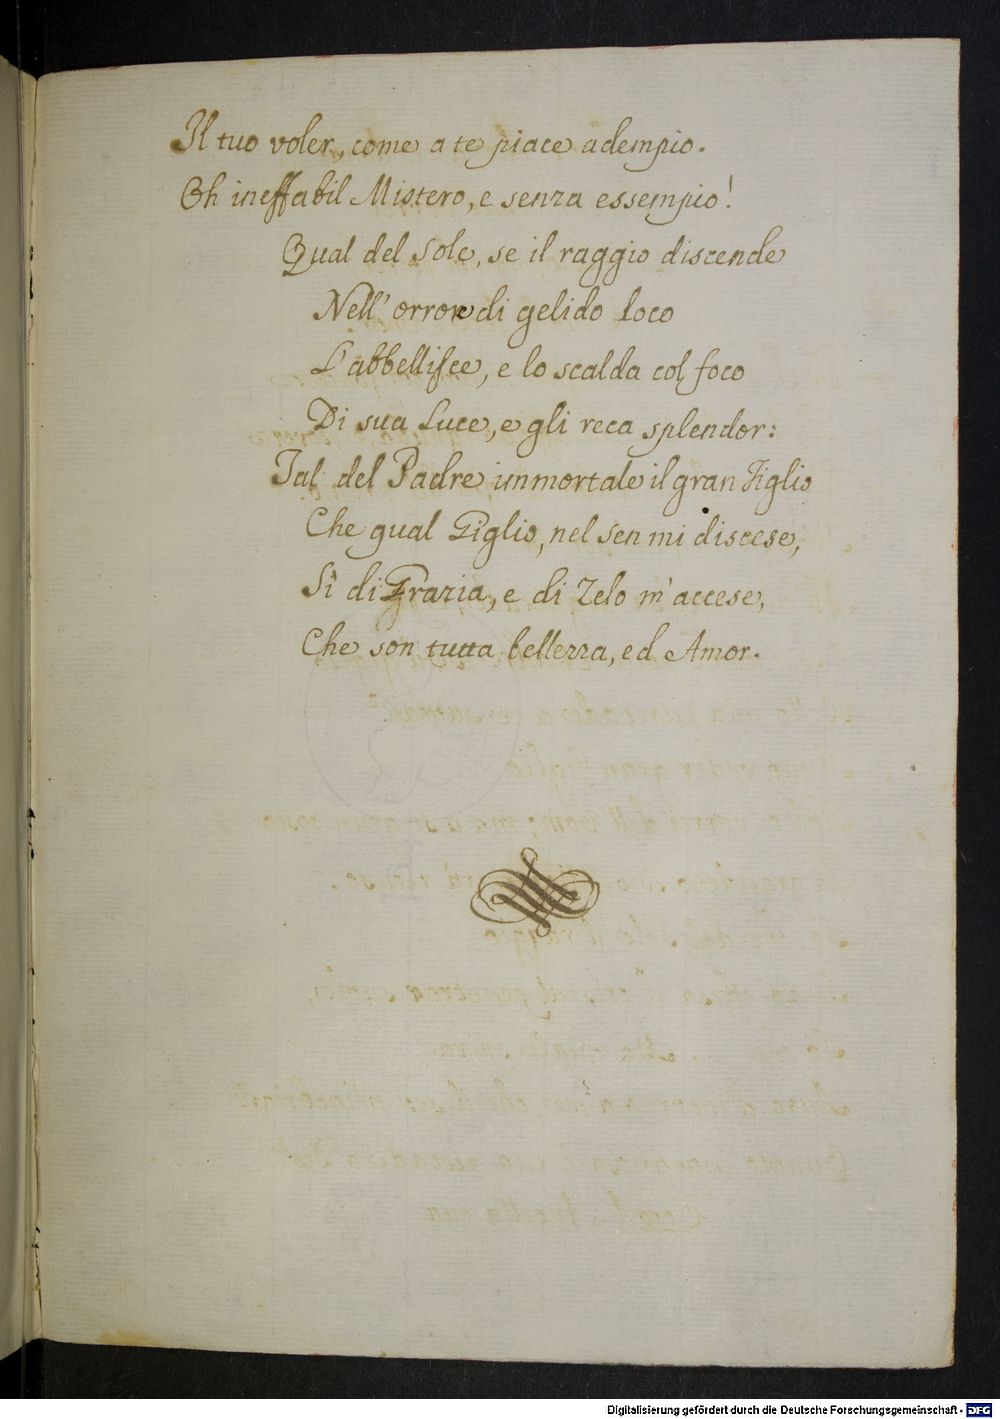 Il tuo voler, come a te piace adempio.
Oh ineffabil Mistero, e senza essempio!
Qual del Sole, se il raggio discende
Nell' orrore di gelido loco
L'abbellisce, e lo scalda col foco
Di sua Luce, e gli reca splendor:
Tal del Padre immortale il gran Figlio
Che qual Giglio, nel sen mi discese,
Sì di Grazia, e di Zelo m'accese,
Che son tutta bellezza, ed Amor.
Digitalisierung gefördert durch die Deutsche Forschungsgemeinschaft - DFG